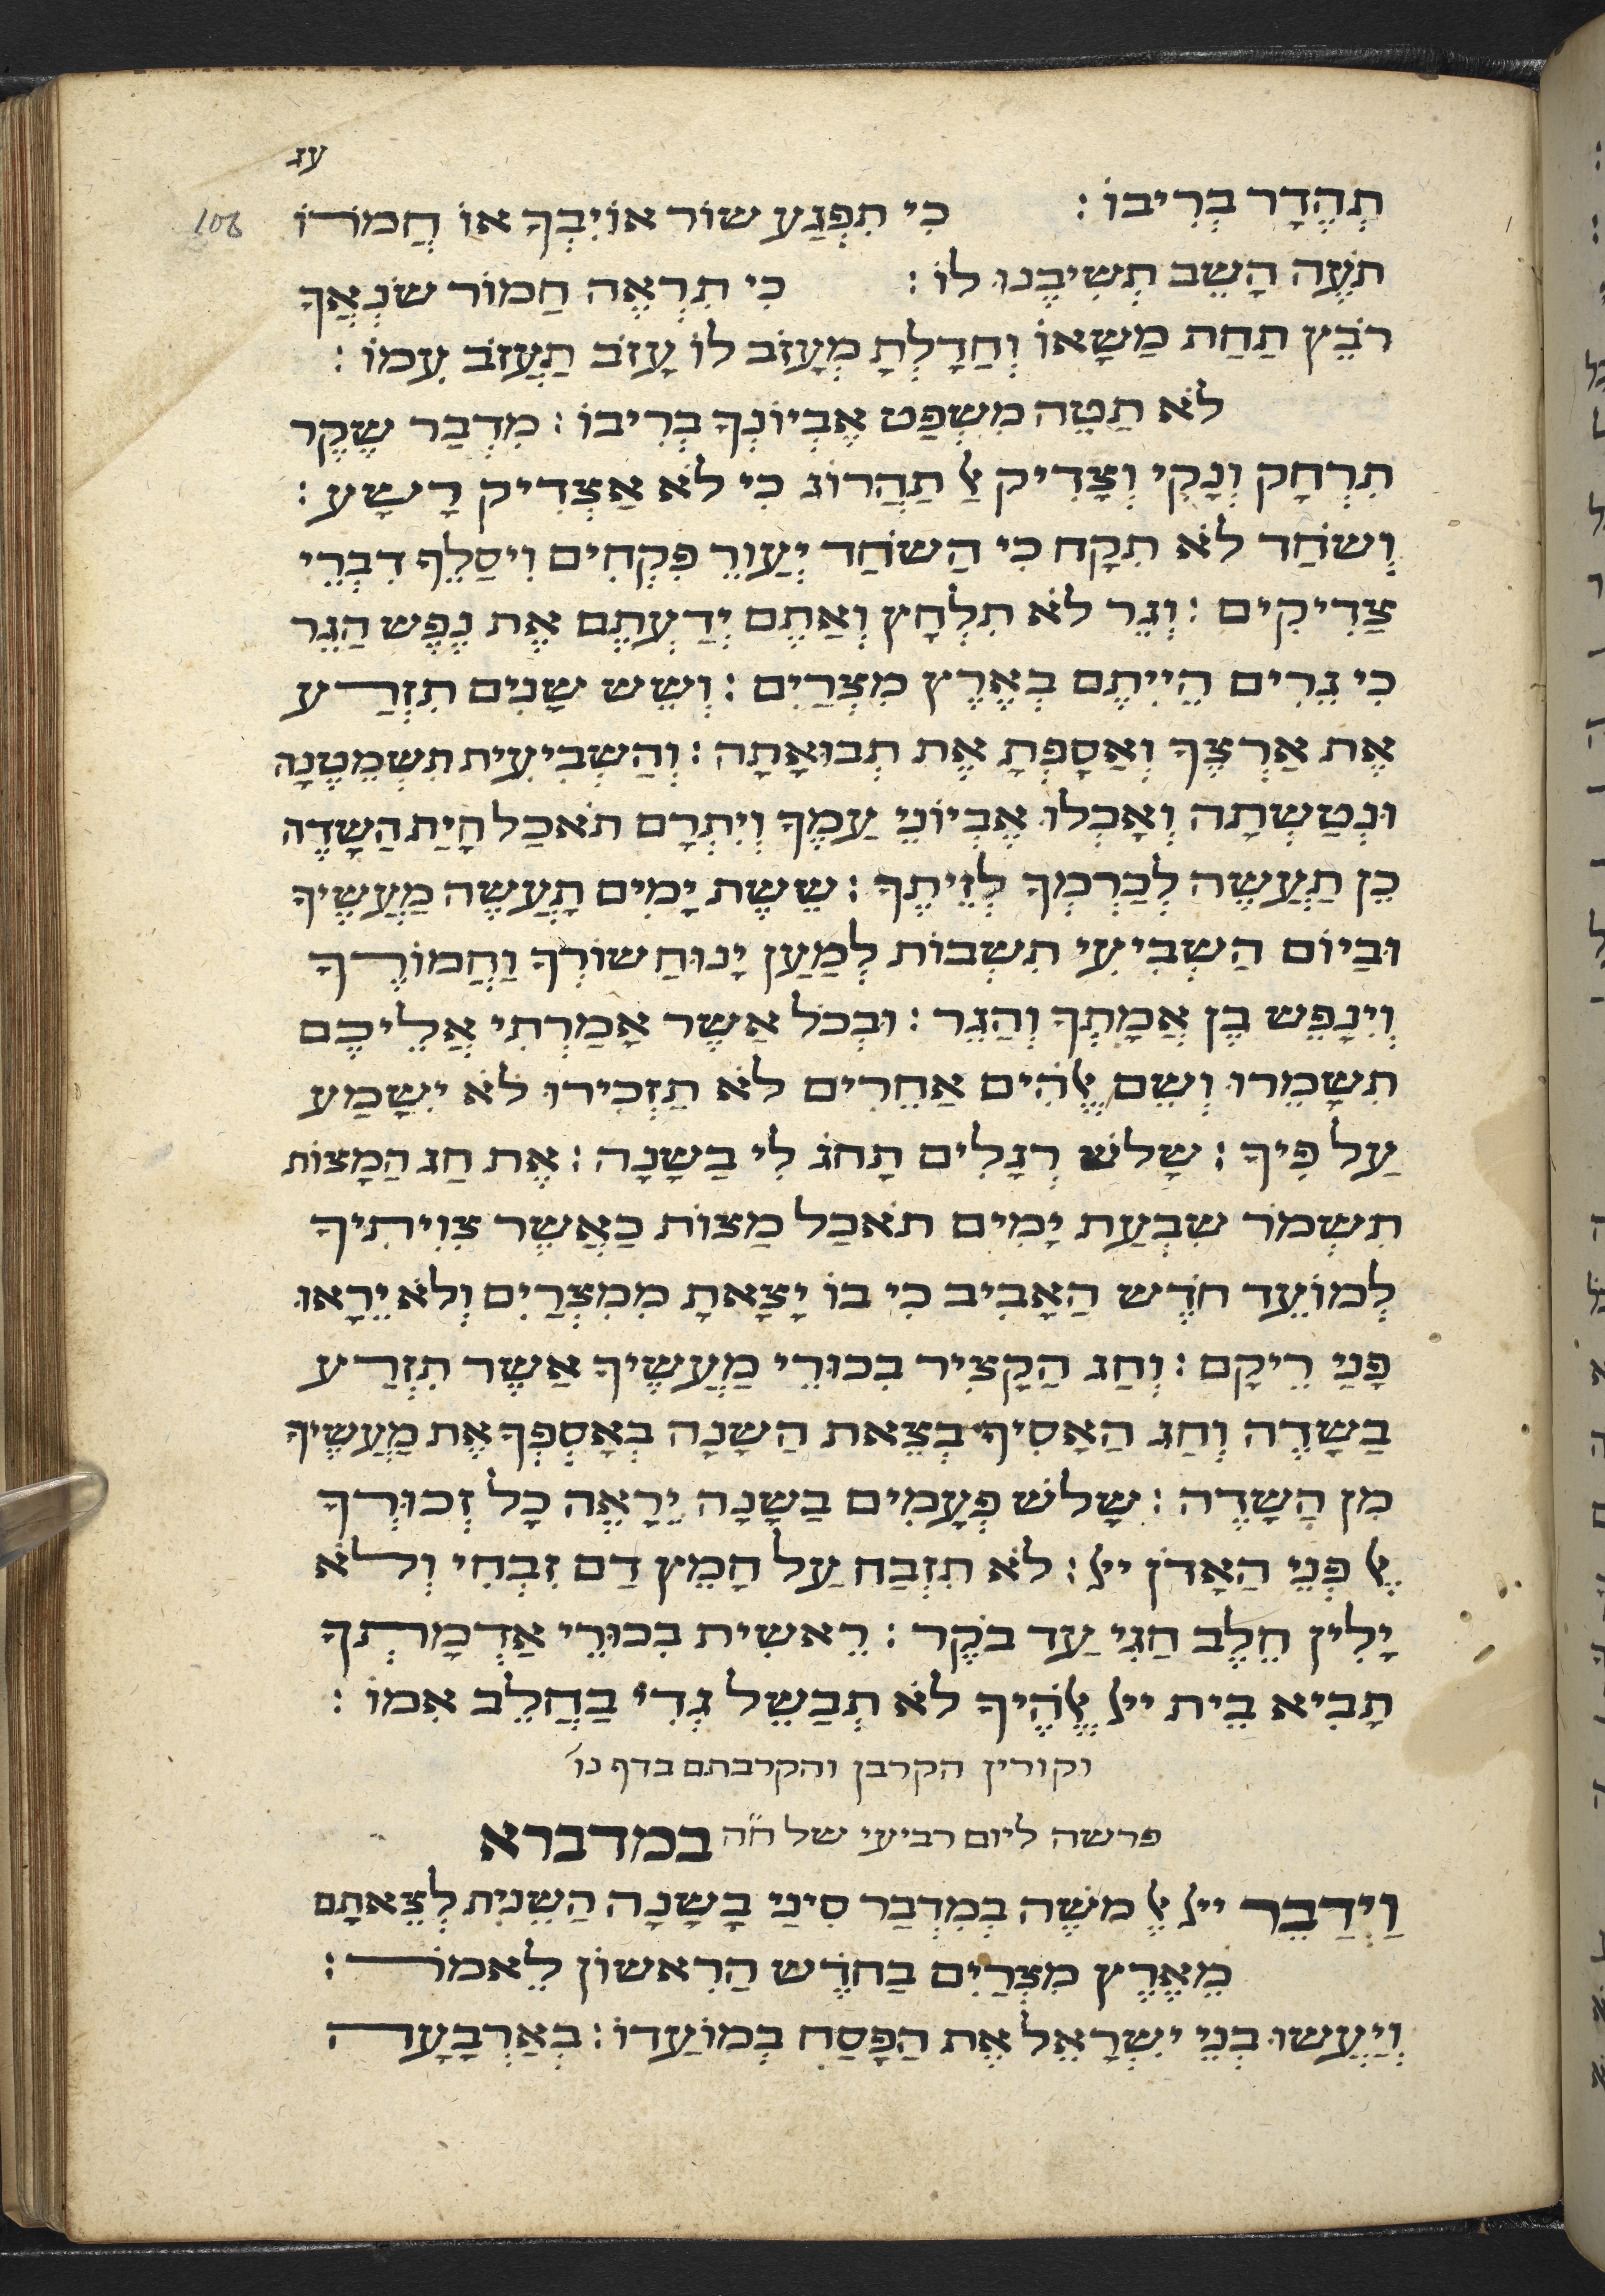 עג
106
תְהְדַּר בְרִיבוֹ: כִי תִפְגַע שׁוֹר אוֹיִבְךָ אוֹ חֲמֹרוֹ
תֹעֶה הָשֵׁב תְשִׁיבֶנוּ לוֹ: כִי תִרְאֶה חַמוֹר שֹנְאֲךָ
רֹבֵץ תַחַת מַשָאוֹ וְחַדָלְתָ מְעָזֹב לוֹ עָזֹב תַעֲזֹב עִמוֹ:
לֹא תַטֶה מִשְפַט אֶבְיוֹנְךָ בְרִיבוֹ: מִדְבַר שֶקֶר
תִרְחָק וְנָקִי וְצָדִיק אַל תַהֲרוֹג כִי לֹא אַצְדִיק רָשָע:
וְשֹחַד לֹא תִקָח כִי הַשֹחַד יְעַוֵר פִקְחִים וִיסַלֵף דִבְרֵי
צַדִיקִים: וְגֵר לֹא תִלְחָץ וְאַתֶם יְדַעְתֶם אֶת נֶפֶש הַגֵר
כִי גֵרִים הֱיִיתֶם בְאֶרֶץ מִצְרָיִם: וְשֵש שָנִים תִזְרַע
אֶת אַרְצֶךָ וְאַסָפְתָ אֶת תְבוּאָתָה: וְהַשְבִיעִית תִשְמְטֶנָה
וּנְטַשְתָה וְאָכְלוּ אֶבְיוֹנֵי עַמֶךָ וְיִתְרָם תֹאכַל חָיַת הַשָדֶה
כֵן תַעֲשֶה לְכַרְמְךָ לְזֵיתֶךָ: שֵשֶת יָמִים תָעֲשֶה מַעֲשֶיךָ
וּבַיוֹם הַשְבִיעִי תִשְבוֹת לְמַעַן יָנוּחַ שוֹרְךָ וַחֲמוֹרֶךָ
וְיִנָפֵש בֶן אֲמָתְךָ וְהַגֵר: וּבְכֹל אַשֶר אָמַרְתִי אֲלֵיכֶם
תִשָמֵרוּ וְשֵם אֱלֹהִים אַחֵרִים לֹא תַזְכִירוּ לֹא יִשָמַע
עַל פִיךָ: שָלֹש רְגָלִים תָחֹג לִי בַשָנָה: אֶת חַג הַמָצוֹת
תִשְמֹר שִבְעַת יָמִים תֹאכַל מַצוֹת כַאֲשֶר צִוִיתִיךָ
לְמוֹעֵד חֹדֶש הַאָבִיב כִי בוֹ יָצָאתָ מִמִצְרַיִם וְלֹא יֵרָאוּ
פָנַי רֵיקָם: וְחַג הַקָצִיר בִכוּרֵי מַעֲשֶיךָ אַשֶר תִזְרַע
בַשָדֶה וְחַג הַאָסִיף בְצֵאת הַשָנָה בְאָסְפְךָ אֶת מַעֲשֶיךָ
מִן הַשָדֶה: שָלֹש פְעָמִים בַשָנָה יֵרָאֶה כָל זְכוּרְךָ
אֶל פְנֵי הַאָדֹן ייל: לֹא תִזְבַח עַל חָמֵץ דַם זִבְחִי וְלֹא
יָלִין חֵלֶב חַגִי עַד בֹקֶר: רֵאשִית בִכוּרֵי אַדְמָתְךָ
תָבִיא בֵית ייל אֱלֹהֶיךָ לֹא תְבַשֵל גְדִי בַחֲלֵב אִמוֹ:
וקורין הקרבן והקרבתם בדף נו׳
פרשה ליום רביעי של ח״ה במדברא
וַיְדַבֵר ייל אֶל מֹשֶה בְמִדְבַר סִינַי בָשָנָה הַשֵנִית לְצֵאתָם
מֵאֶרֶץ מִצְרַיִם בַחֹדֶש הַרִאשוֹן לֵאמֹר:
וְיַעֲשוּ בְנֵי יִשְרָאֵל אֶת הַפָסַח בְמוֹעַדוֹ: בְאַרְבָעָה